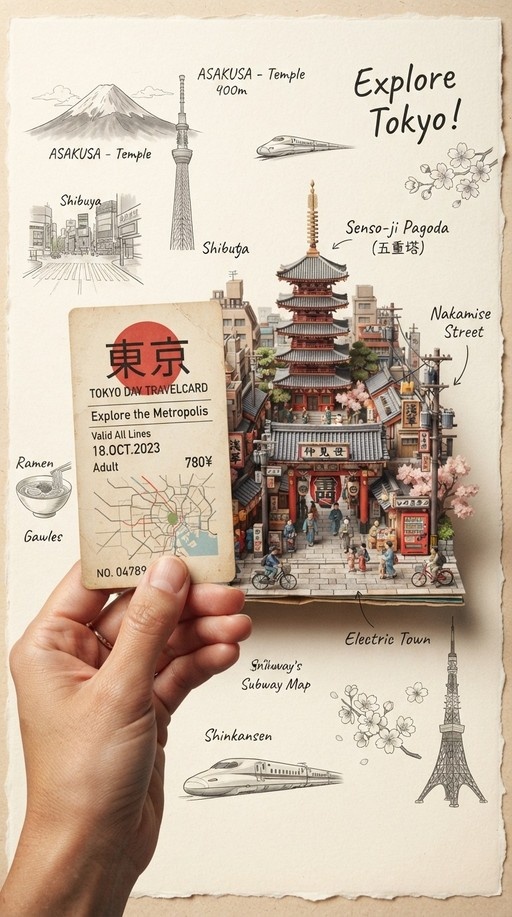 ASAKUSA - Temple
400m
Explore
Tokyo!
ASAKUSA - Temple
Shibuya
Senso-ji Pagoda
(五重塔)
Nakamise
Street
東京
TOKYO DAY TRAVELCARD
Explore the Metropolis
Valid All Lines
18.OCT.2023
Adult 780¥
NO. 04789
仲見世
浅草
Ramen
Gawles
Electric Town
Subway Map
Shinkansen